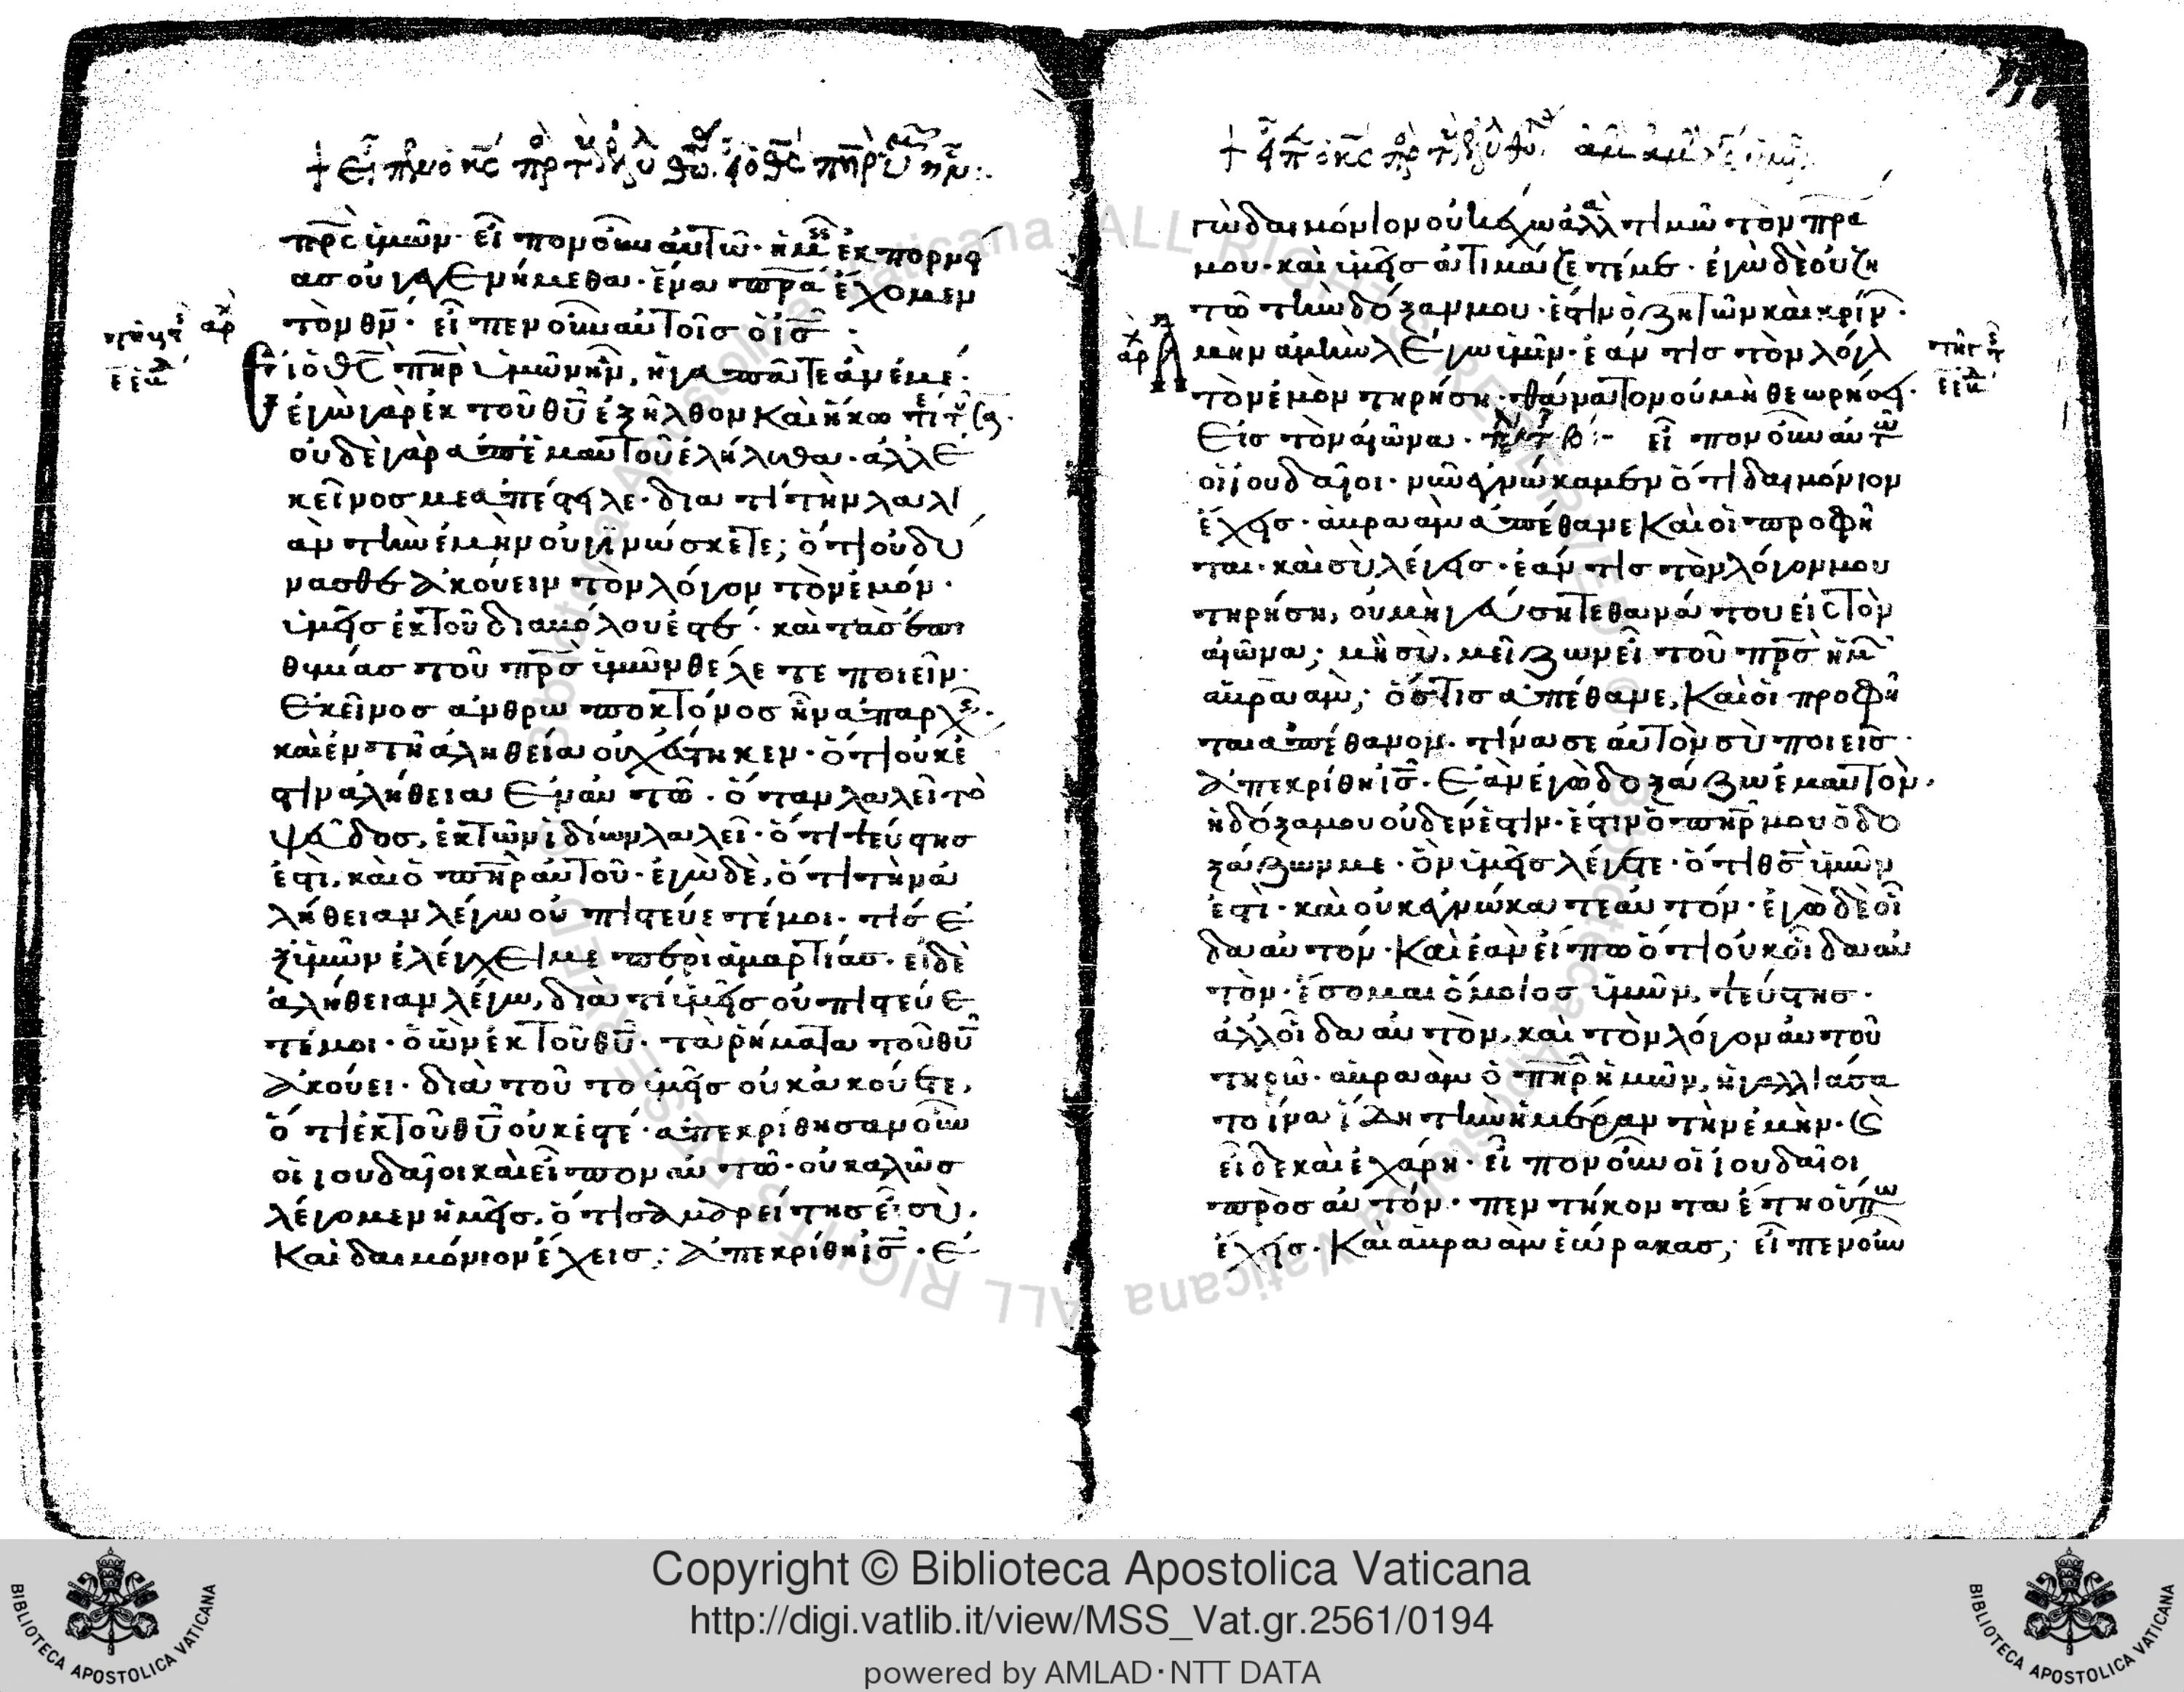 πρ̅ς ὑμῶν· εἶπον οὖν αὐτῶ· ἡμεῖς ἐκ πορνεί
ας οὐ γεγενήμεθα· ἕνα πρ̅α ἔχομεν
τὸν θν̅· εἶπεν οὖν αὐτοῖς ὁ ισ̅·
εἰ ὁ θς̅ πη̅ρ ὑμῶν ἦν, ἠγαπᾶτε ἂν ἐμέ·
ἐγὼ γὰρ ἐκ τοῦ θυ̅ ἐξῆλθον καὶ ἥκω
οὐδὲ γὰρ ἀπ' ἐμαυτοῦ ἐλήλυθα· ἀλλ' ἐ
κεῖνος με ἀπέστειλε· διατί τὴν λαλι
ὰν τὴν ἐμὴν οὐ γινώσκετε; ὅτι οὐ δύ
νασθε ἀκούειν τὸν λόγον τὸν ἐμόν·
ὑμεῖς ἐκ τοῦ διαβόλου ἐστέ· καὶ τὰς ἐπι
θυμίας τοῦ πρ̅ς ὑμῶν θέλετε ποιεῖν·
Ἐκεῖνος ἀνθρωποκτόνος ἦν ἀπαρχῆς·
καὶ ἐν τῆ ἀληθεία οὐχ ἕστηκεν· ὅτι οὐκ ἔ
στιν ἀλήθεια ἐν αὐτῶ· ὅταν λαλεῖ τὸ
ψεῦδος, ἐκ τῶν ἰδίων λαλεῖ· ὅτι ψεύστης
ἐστὶ, καὶ ὁ πη̅ρ αὐτοῦ· ἐγὼ δὲ, ὅτι τὴν ἀ
λήθειαν λέγω οὐ πιστεύετέ μοι· τίς ἐ
ξ ὑμῶν ἐλέγχει με περὶ ἁμαρτίας· εἰ δὲ
ἀλήθειαν λέγω, διὰ τί ὑμεῖς οὐ πιστεύε
τέ μοι· ὁ ὢν ἐκ τοῦ θυ̅· τὰ ῥήματα τοῦ θυ̅
ἀκούει· διὰ τοῦτο ὑμεῖς οὐκ ἀκούετε,
ὅτι ἐκ τοῦ θυ̅ οὐκ ἐστέ· ἀπεκρίθησαν οὖν
οἱ ἰουδαῖοι καὶ εἶπον αὐτῶ· οὐ καλῶς
λέγομεν ἡμεῖς, ὅτι σαμαρείτης εἶ σὺ,
Καὶ δαιμόνιον ἔχεις; ἀπεκρίθη ισ̅· ἐ
γὼ δαιμόνιον οὐκ ἔχω ἀλλὰ τιμῶ τὸν πρ̅α
μου· καὶ ὑμεῖς ἀτιμάζετέ με· ἐγὼ δὲ οὐ ζη
τῶ τὴν δόξαν μου· ἔστιν ὁ ζητῶν καὶ κρίν·
Ἀμὴν ἀμὴν λέγω ὑμῖν· ἐάν τις τὸν λόγ
τὸν ἐμὸν τηρήση· θάνατον οὐ μὴ θεωρήσει·
Εἰς τὸν αἰῶνα· εἶπον οὖν αὐτῶ
οἱ ἰουδαῖοι· νῦν ἐγνώκαμεν ὅτι δαιμόνιον
ἔχεις· ἀβραὰμ ἀπέθανε καὶ οἱ προφῆ
ται· καὶ σὺ λέγεις· ἐάν τις τὸν λόγον μου
τηρήση, οὐ μὴ γεύσητε θανάτου εἰς τὸν
αἰῶνα; μὴ σὺ, μείζων εἶ τοῦ πρ̅ς ἡμ
ἀβραάμ; ὅστις ἀπέθανε, Καὶ οἱ προφῆ
ται ἀπέθανον· τίνα σε αὐτὸν σὺ ποιεῖς·
ἀπεκρίθη ισ̅· Ἐὰν ἐγὼ δοξάζω ἐμαυτὸν·
ἡ δόξα μου οὐδέν ἐστιν· ἔστιν ὁ πη̅ρ μου ὁ δο
ξάζων με· ὃν ὑμεῖς λέγετε· ὅτι θς̅ ὑμῶν
ἐστι· καὶ οὐκ ἐγνώκατε αὐτόν· ἐγὼ δὲ οἶ
δα αὐτόν· Καὶ ἐὰν εἴπω ὅτι οὐκ οἶδα αὐ
τὸν· ἔσομαι ὅμοιος ὑμῶν, ψεύστης·
ἀλλ' οἶδα αὐτὸν, καὶ τὸν λόγον αὐτοῦ
τηρῶ· ἀβραὰμ ὁ πη̅ρ ἡμῶν, ἠγαλλιάσα
το ἵνα ἴδη τὴν ἡμέραν τὴν ἐμὴν· καὶ
εἶδε καὶ ἐχάρη· εἶπον οὖν οἱ ἰουδαῖοι
πρὸς αὐτόν· πεντήκοντα ἔτη οὔπω
ἔχεις· Καὶ ἀβραὰμ ἑώρακας; εἶπεν οὖν
Copyright © Biblioteca Apostolica Vaticana
http://digi.vatlib.it/view/MSS_Vat.gr.2561/0194
powered by AMLAD·NTT DATA
BIBLIOTECA APOSTOLICA VATICANA
BIBLIOTECA APOSTOLICA VATICANA